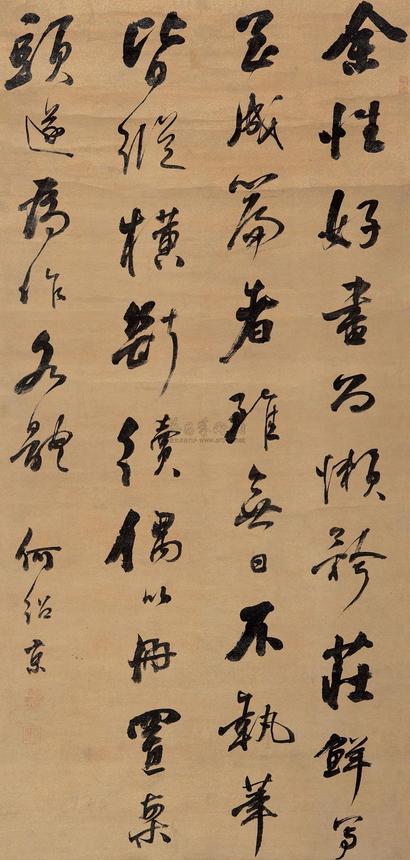 余性好書而懶矜莊鮮寫
至成篇者雖無日不執筆
皆縱橫斷續偶以冊置案
頭遂為作各體 何紹京